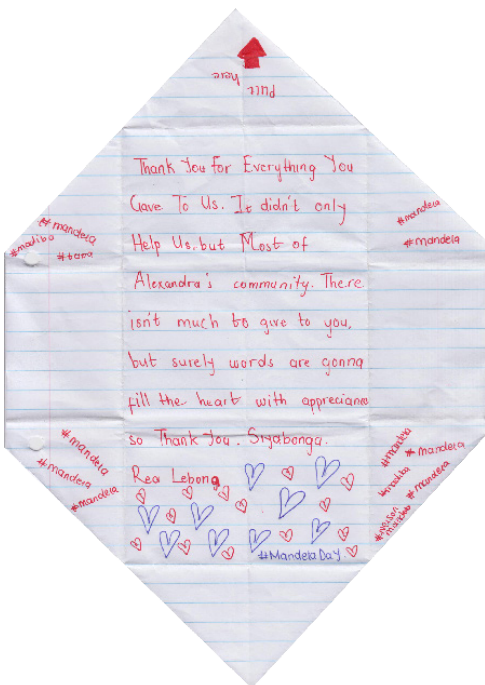 pull
here
Thank You for Everything You
Gave To Us. It didn't only
Help Us, but Most of
Alexandra's community. There
isn't much to give to you,
but surely words are gonna
fill the heart with appreciane
so Thank You. Siyabonga.
Rea Lebong
#MandelaDay
#mandela
#madiba
#tata
#mandela
#mandela
#mandela
#mandela
#mandela
#mandela
#mandela
#madiba
#mandela
#nelson
mandela